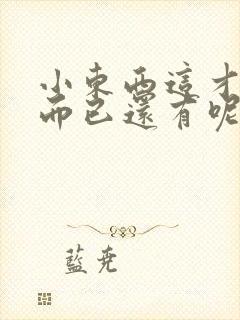 小東西這才
而已還有呢
藍堯